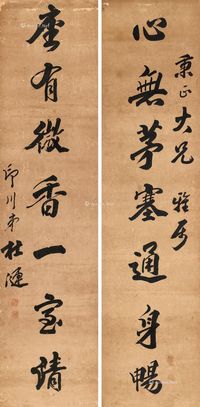 秉正大兄 雅属
心無茅塞通身暢
座有微香一室清
印川弟杜漣